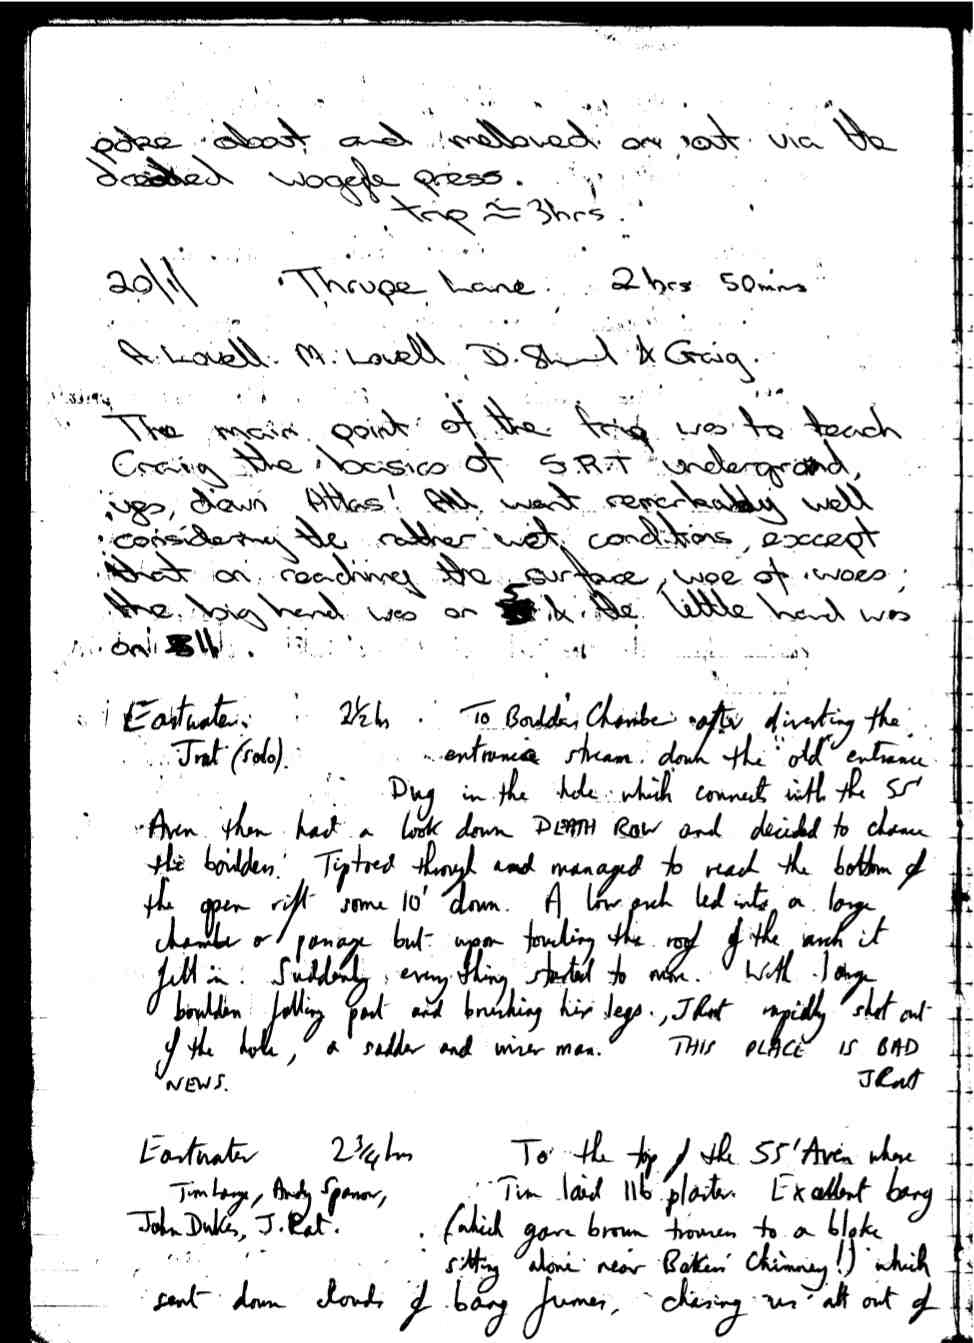 poke about and mellowed on out via the
dreaded woggle press.
trip ≈ 3hrs.
20/1/ Thrupe Lane. 2 hrs 50mins
A. Lovell. M. Lovell D. & Craig.
The main point of the trip was to teach
Craig the basics of S.R.T underground,
ups, down Atlas! All went remarkably well
considering the rather wet conditions, except
that on reaching the surface, woe of woes;
the big hand was on 5 & the little hand was
on 11.
Eastwater. 2½hs. To Boulder Chamber after diverting the
Jrat (solo). entrance stream down the "old" entrance
Dug in the hole which connects with the 55'
Aven then had a look down DEATH ROW and decided to chance
the boulders. Tiptoed through and managed to reach the bottom of
the open rift some 10' down. A low arch led into a large
chamber or passage but upon touching the roof of the arch it
fell in. Suddenly everything started to move. With large
boulders falling past and brushing his legs, JRat rapidly shot out
of the hole, a sadder and wiser man. THIS PLACE IS BAD
NEWS. JRat
Eastwater 2¾hrs To the top of the 55' Aven where
Tim Large, Andy Sparrow, Tim laid 1lb plaster. Excellent bang
John Dukes, J.Rat. (which gave brown trousers to a bloke
sitting alone near Bakers Chimney!) which
sent down clouds of bang fumes, chasing us all out of